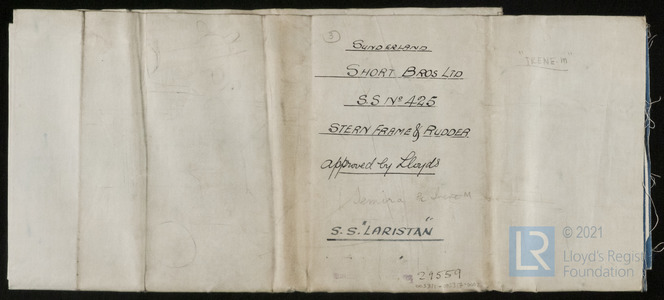 5
SUNDERLAND
SHORT BROS LTD
S.S Nº 425
STERN FRAME & RUDDER
approved by Lloyd's
S.S. "LARISTAN"
29559
IRENE M
LR
© 2021
Lloyd's Register
Foundation